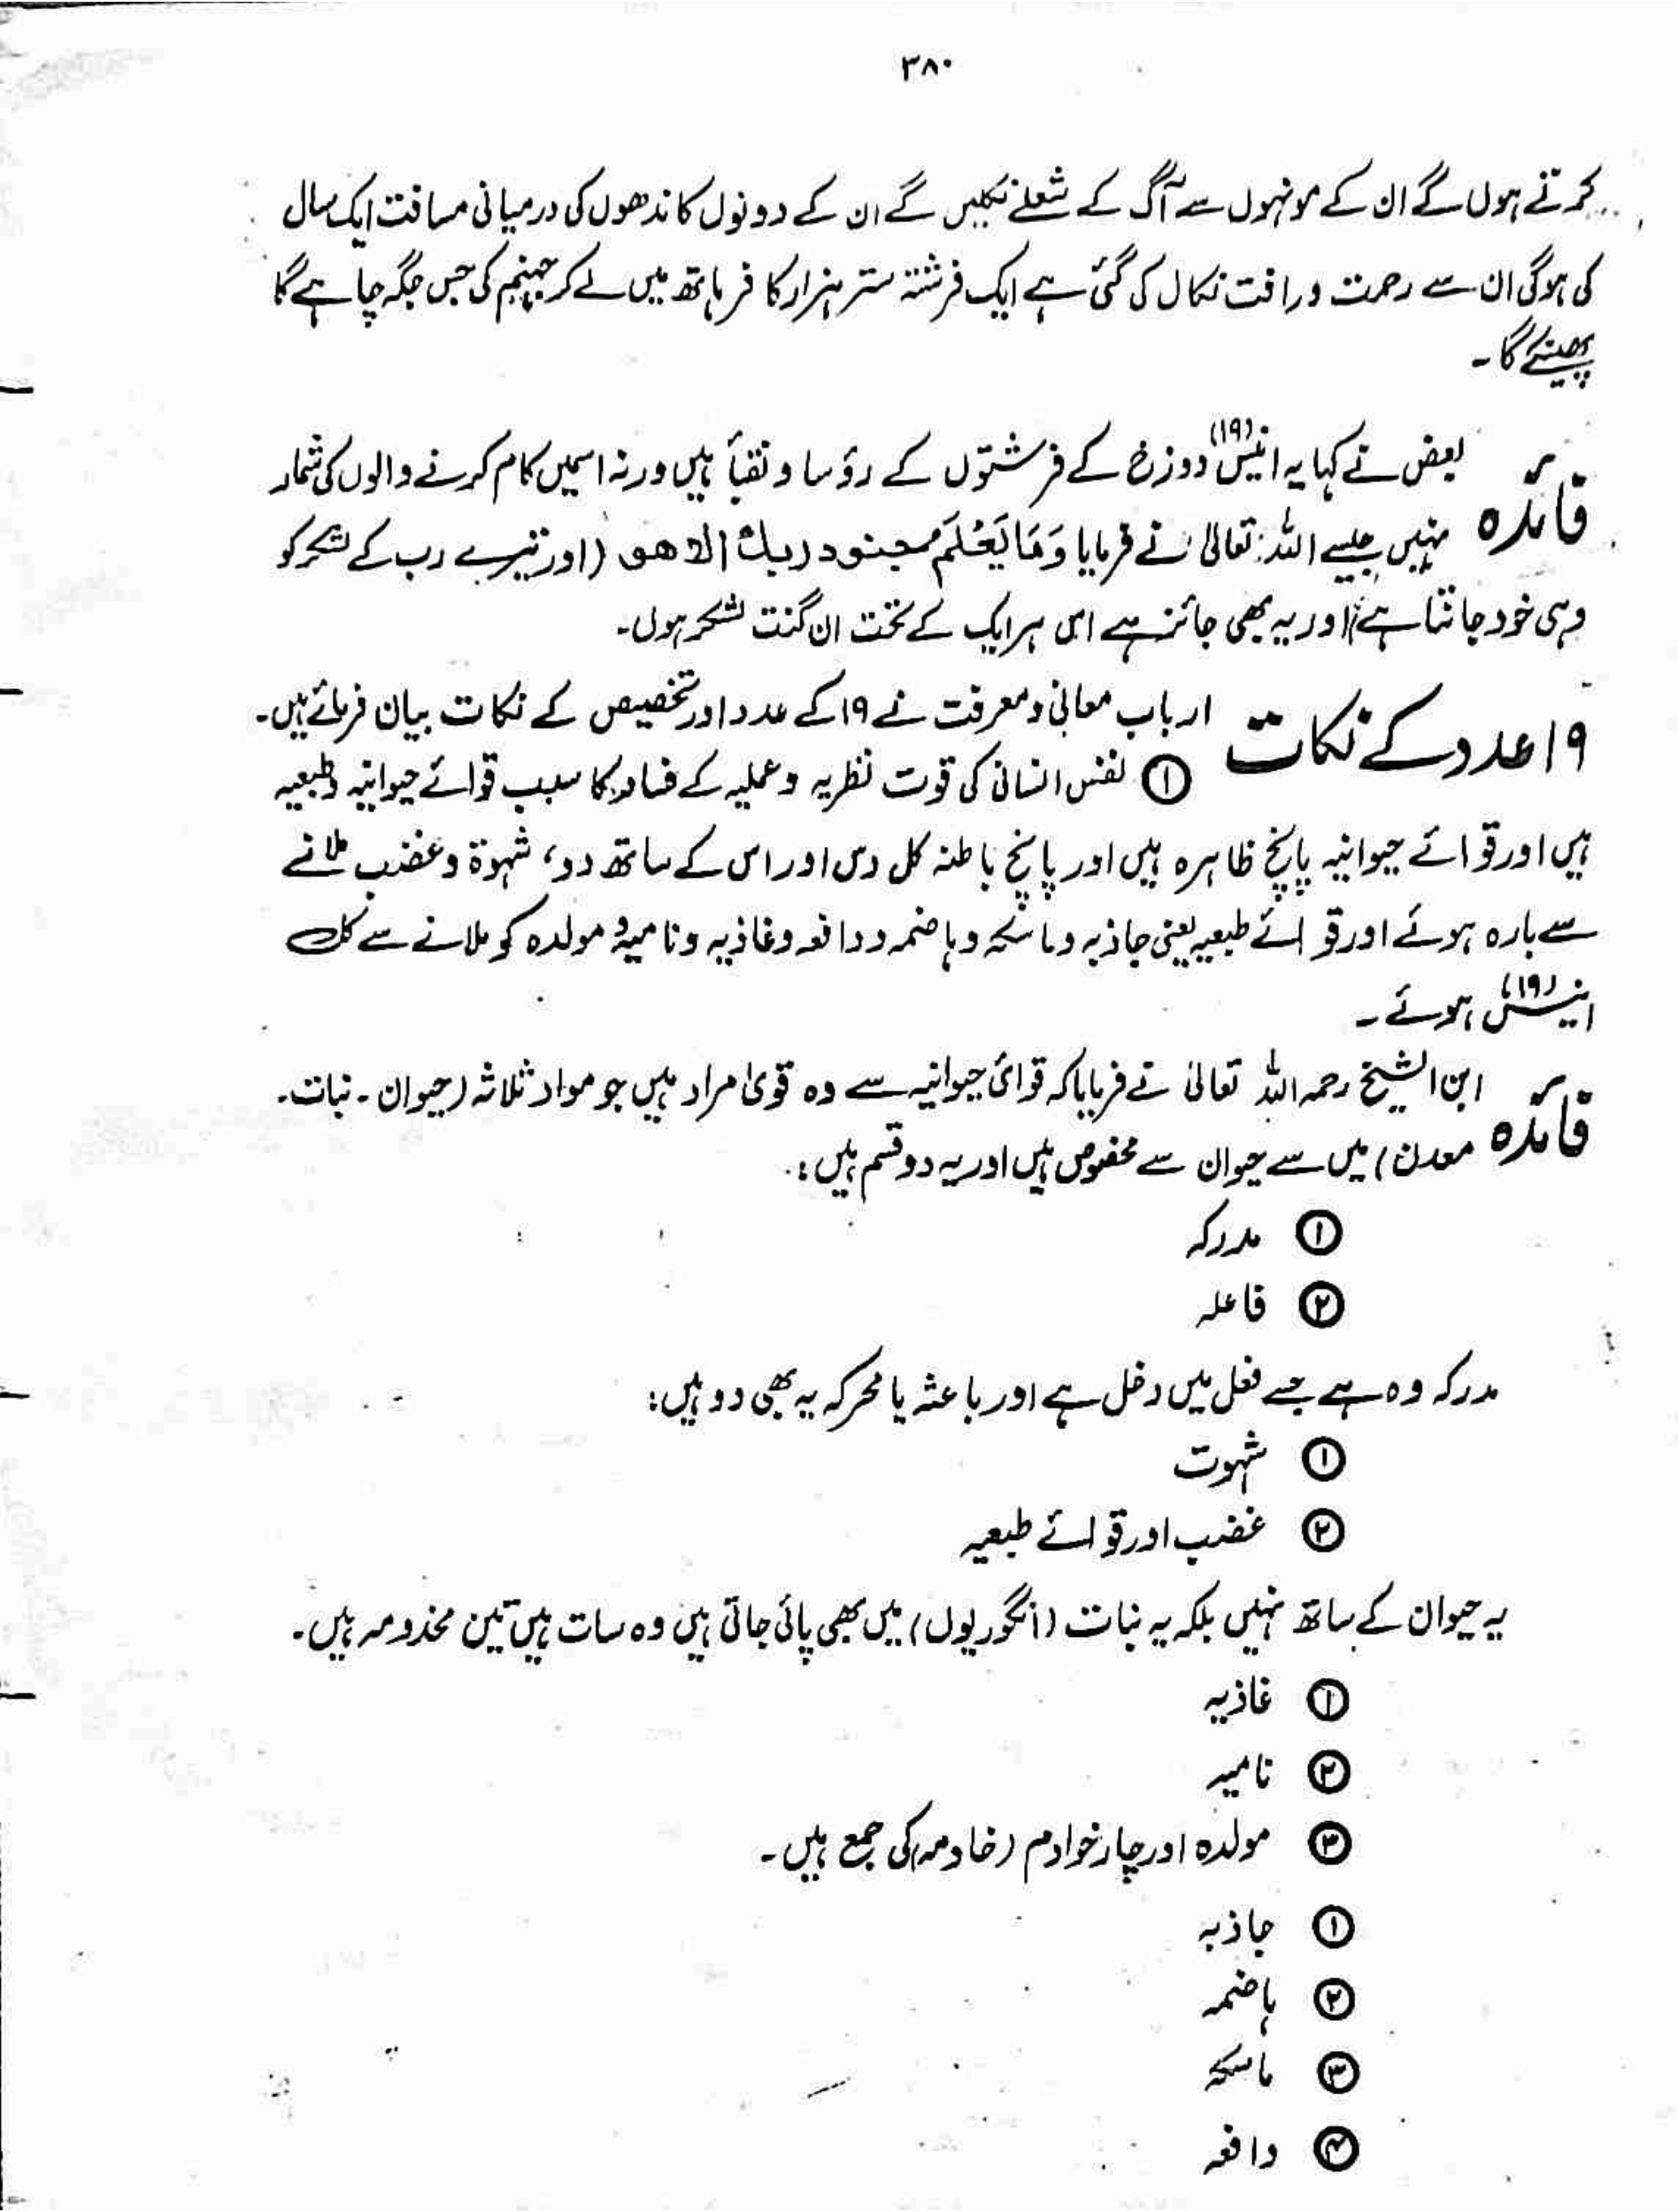 ۳۸۰
کرتے ہوں گے ان کے مونہوں سے آگ کے شعلے نکلیں گے ان کے دونوں کاندھوں کی درمیانی مسافت ایک سال
کی ہوگی ان سے رحمت ورافت نکال کی گئی ہے ایک فرشتہ ستر ہزار کافر ہاتھ میں لے کر جہنم کی جس جگہ چاہے گا
پھینکے گا۔
فائدہ بعض نے کہا یہ انیس (۱۹) دوزخ کے فرشتوں کے رؤسا و نقبأ ہیں ورنہ اسمیں کام کرنے والوں کی شمار
نہیں جیسے اللہ تعالیٰ نے فرمایا وَمَا یَعْلَمُ جنود ربك الا هو (اور تیرے رب کے لشکر کو
وہی خود جانتا ہے) اور یہ بھی جائز ہے اس ہر ایک کے تحت ان گنت لشکر ہوں۔
۱۹ عدد کے نکات ارباب معانی و معرفت نے ۱۹ کے عدد اور تخصیص کے نکات بیان فرمائے ہیں۔
① نفس انسانی کی قوت نظریہ وعملیہ کے فساد کا سبب قوائے حیوانیہ و طبعیہ
ہیں اور قوائے حیوانیہ پانچ ظاہرہ ہیں اور پانچ باطنہ کل دس اور اس کے ساتھ دو، شہوۃ وغضب ملانے
سے بارہ ہوئے اور قوائے طبعیہ یعنی جاذبہ وماسکہ وہاضمہ ودافعہ وغاذیہ ونامیہ و مولدہ کو ملانے سے کل
انیس (۱۹) ہوئے۔
فائدہ ابن الشیخ رحمہ اللہ تعالیٰ نے فرمایا کہ قوائ حیوانیہ سے وہ قویٰ مراد ہیں جو مواد ثلاثہ (حیوان۔ نبات۔
معدن) میں سے حیوان سے مخصوص ہیں اور یہ دو قسم ہیں:
① مدرکہ
② فاعلہ
مدرکہ وہ ہے جسے فعل میں دخل ہے اور باعثہ یا محرکہ یہ بھی دو ہیں:
① شہوت
② غضب اور قوائے طبعیہ
یہ حیوان کے ساتھ نہیں بلکہ یہ نبات (انگوریوں) میں بھی پائی جاتی ہیں وہ سات ہیں تین مخدومہ ہیں۔
① غاذیہ
② نامیہ
③ مولدہ اور چار خوادم (خادمہ) کی جمع ہیں۔
① جاذبہ
② ہاضمہ
③ ماسکہ
④ دافعہ